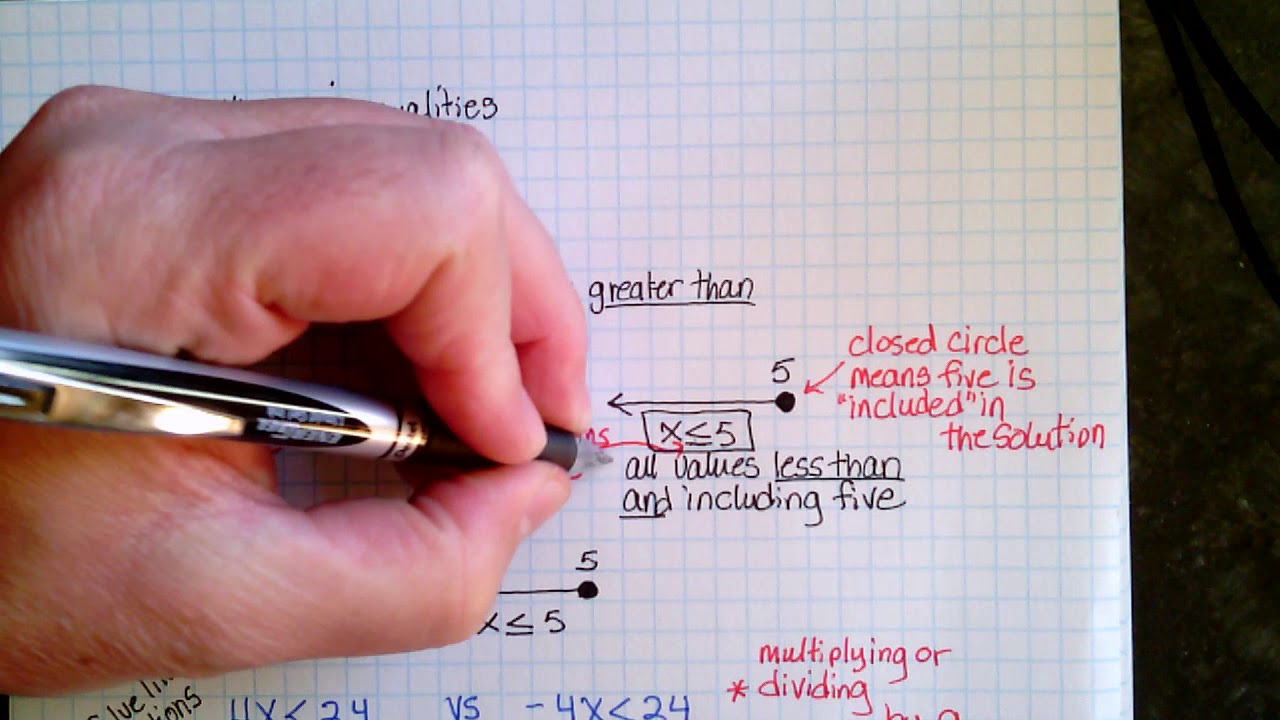 alities
greater than
5
closed circle
means five is
"included" in
the solution
x ≤ 5
all values less than
and including five
5
x ≤ 5
multiplying or
* dividing
4x < 24 vs -4x < 24